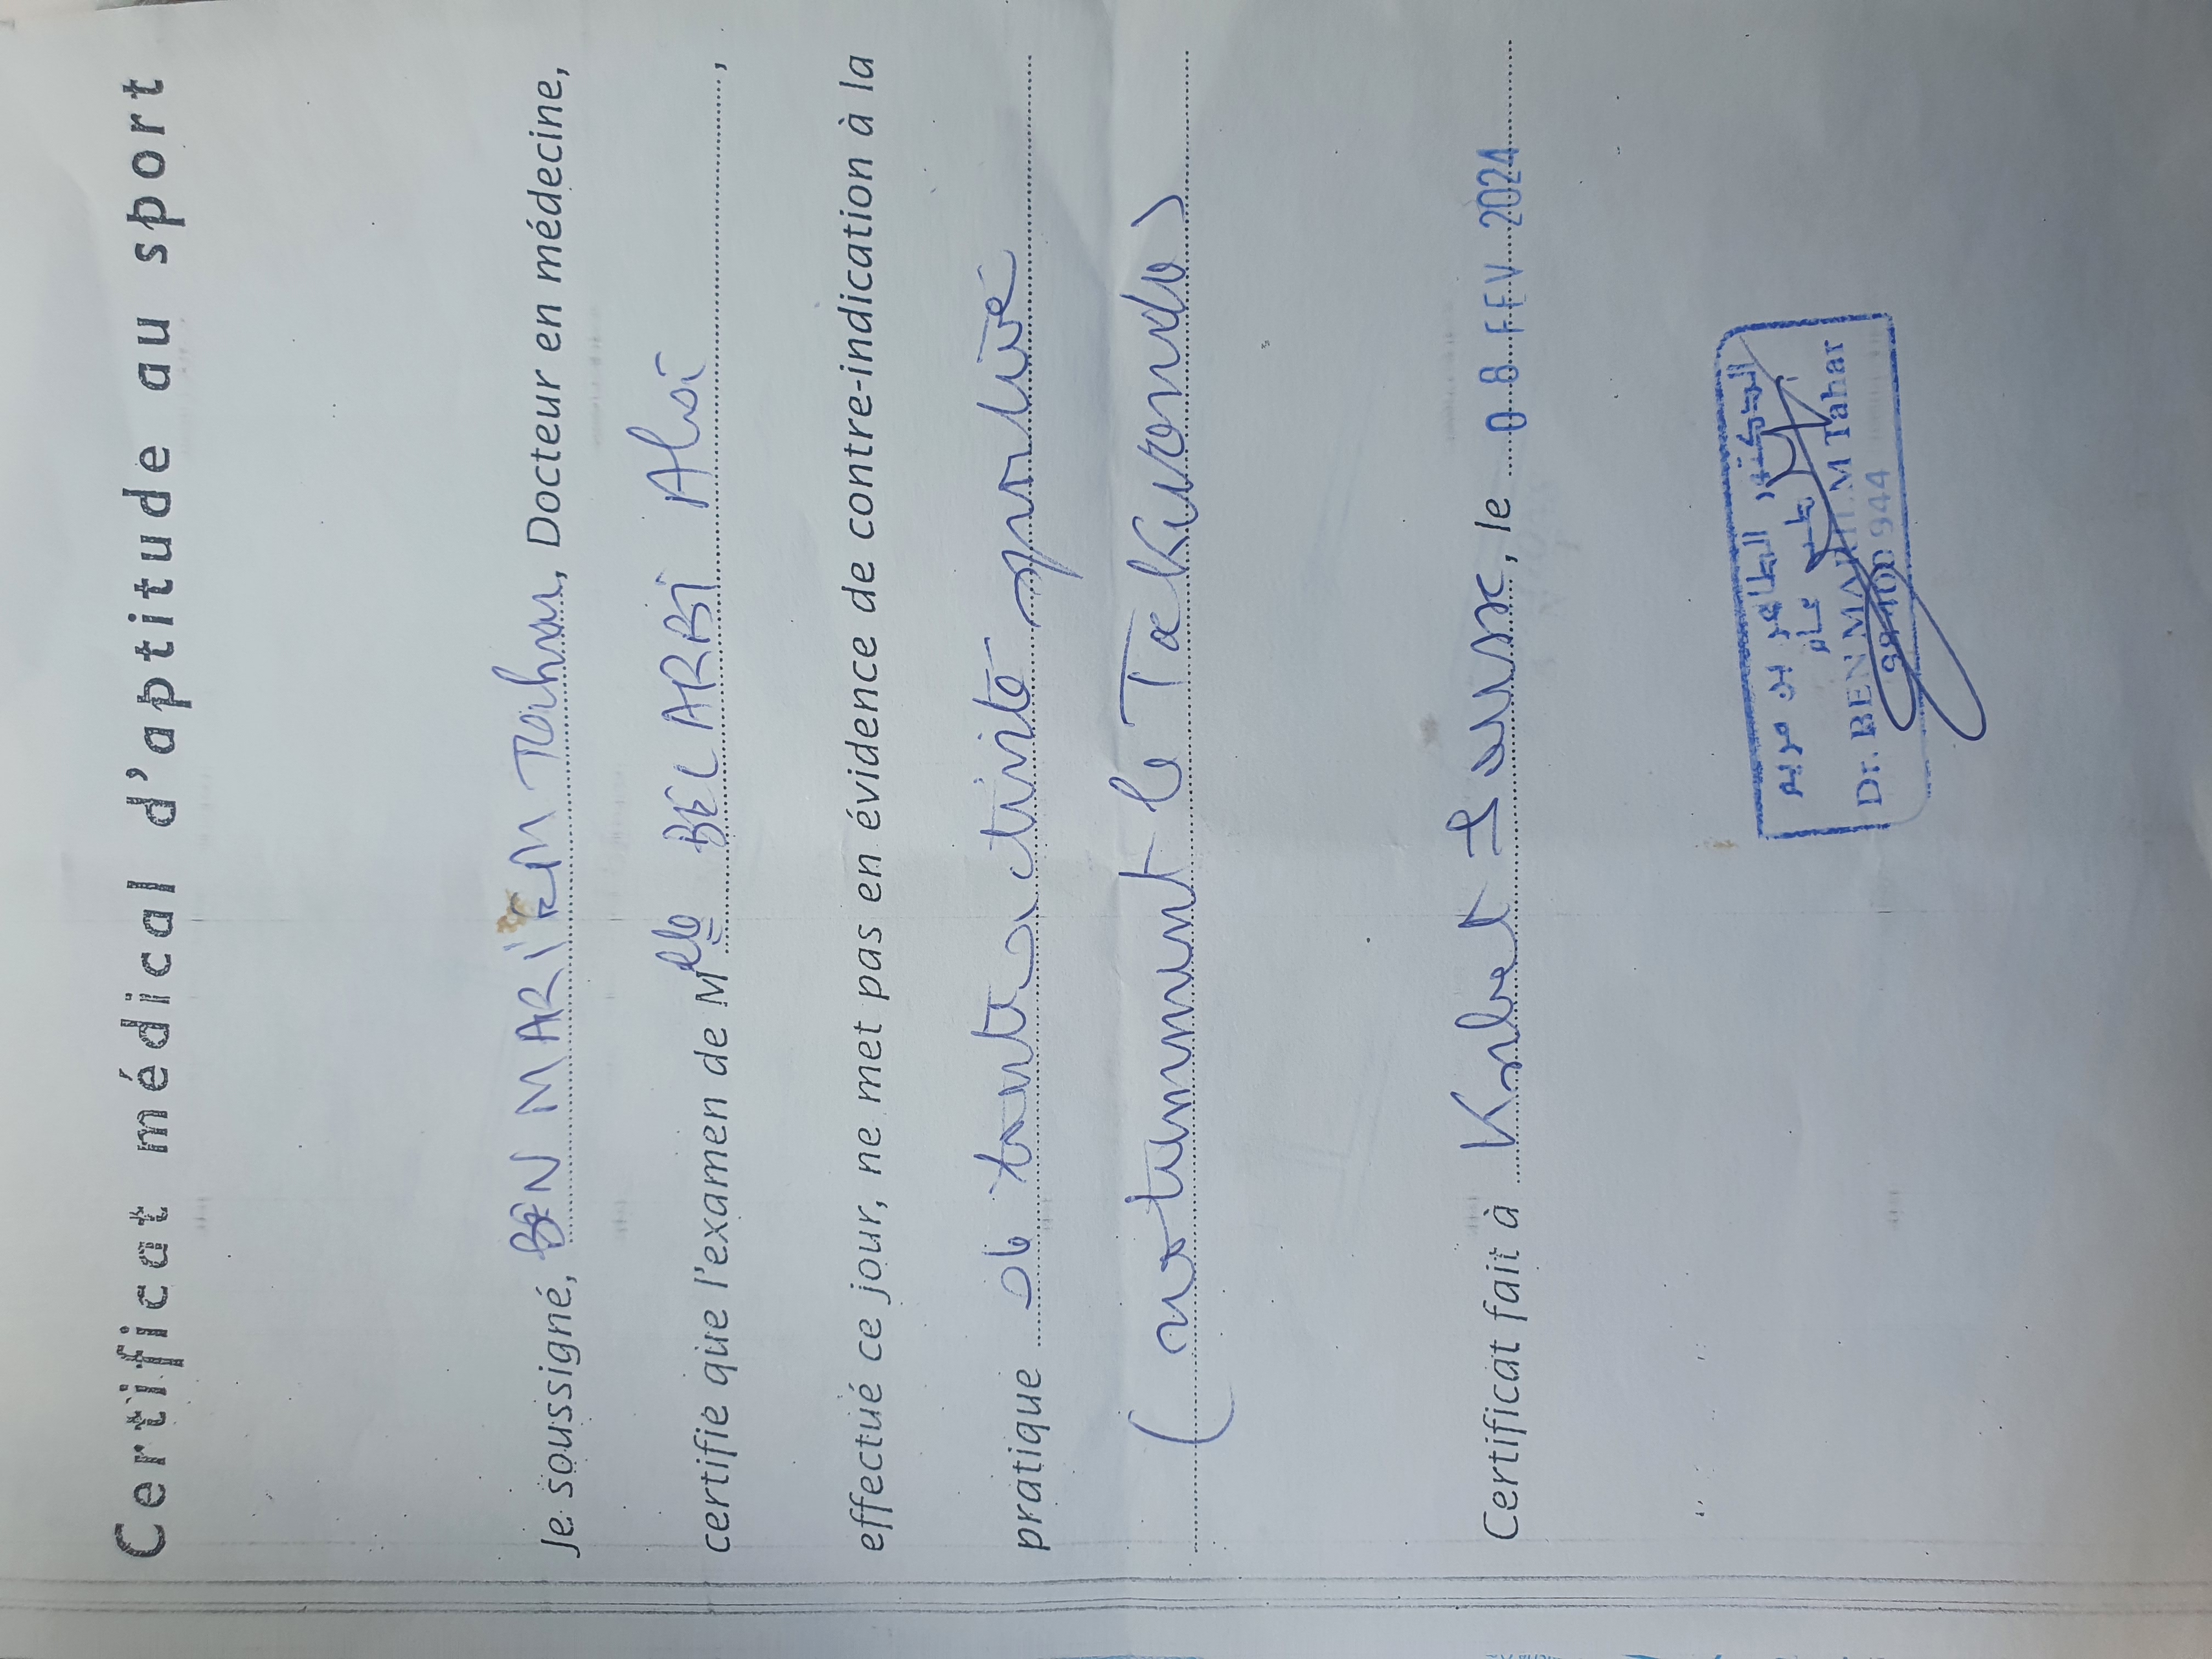 Certificat médical d'aptitude au sport
Je soussigné, BEN MARIEM Tahar, Docteur en médecine,
certifie que l'examen de Mlle BELARBI,
effectué ce jour, ne met pas en évidence de contre-indication à la
pratique de toute activité
(notamment le Taekwondo)
Certificat fait à, le 08 FEV 2024
الدكتور الطاهر بن مريم
طب عام
Dr. BEN MARIEM Tahar